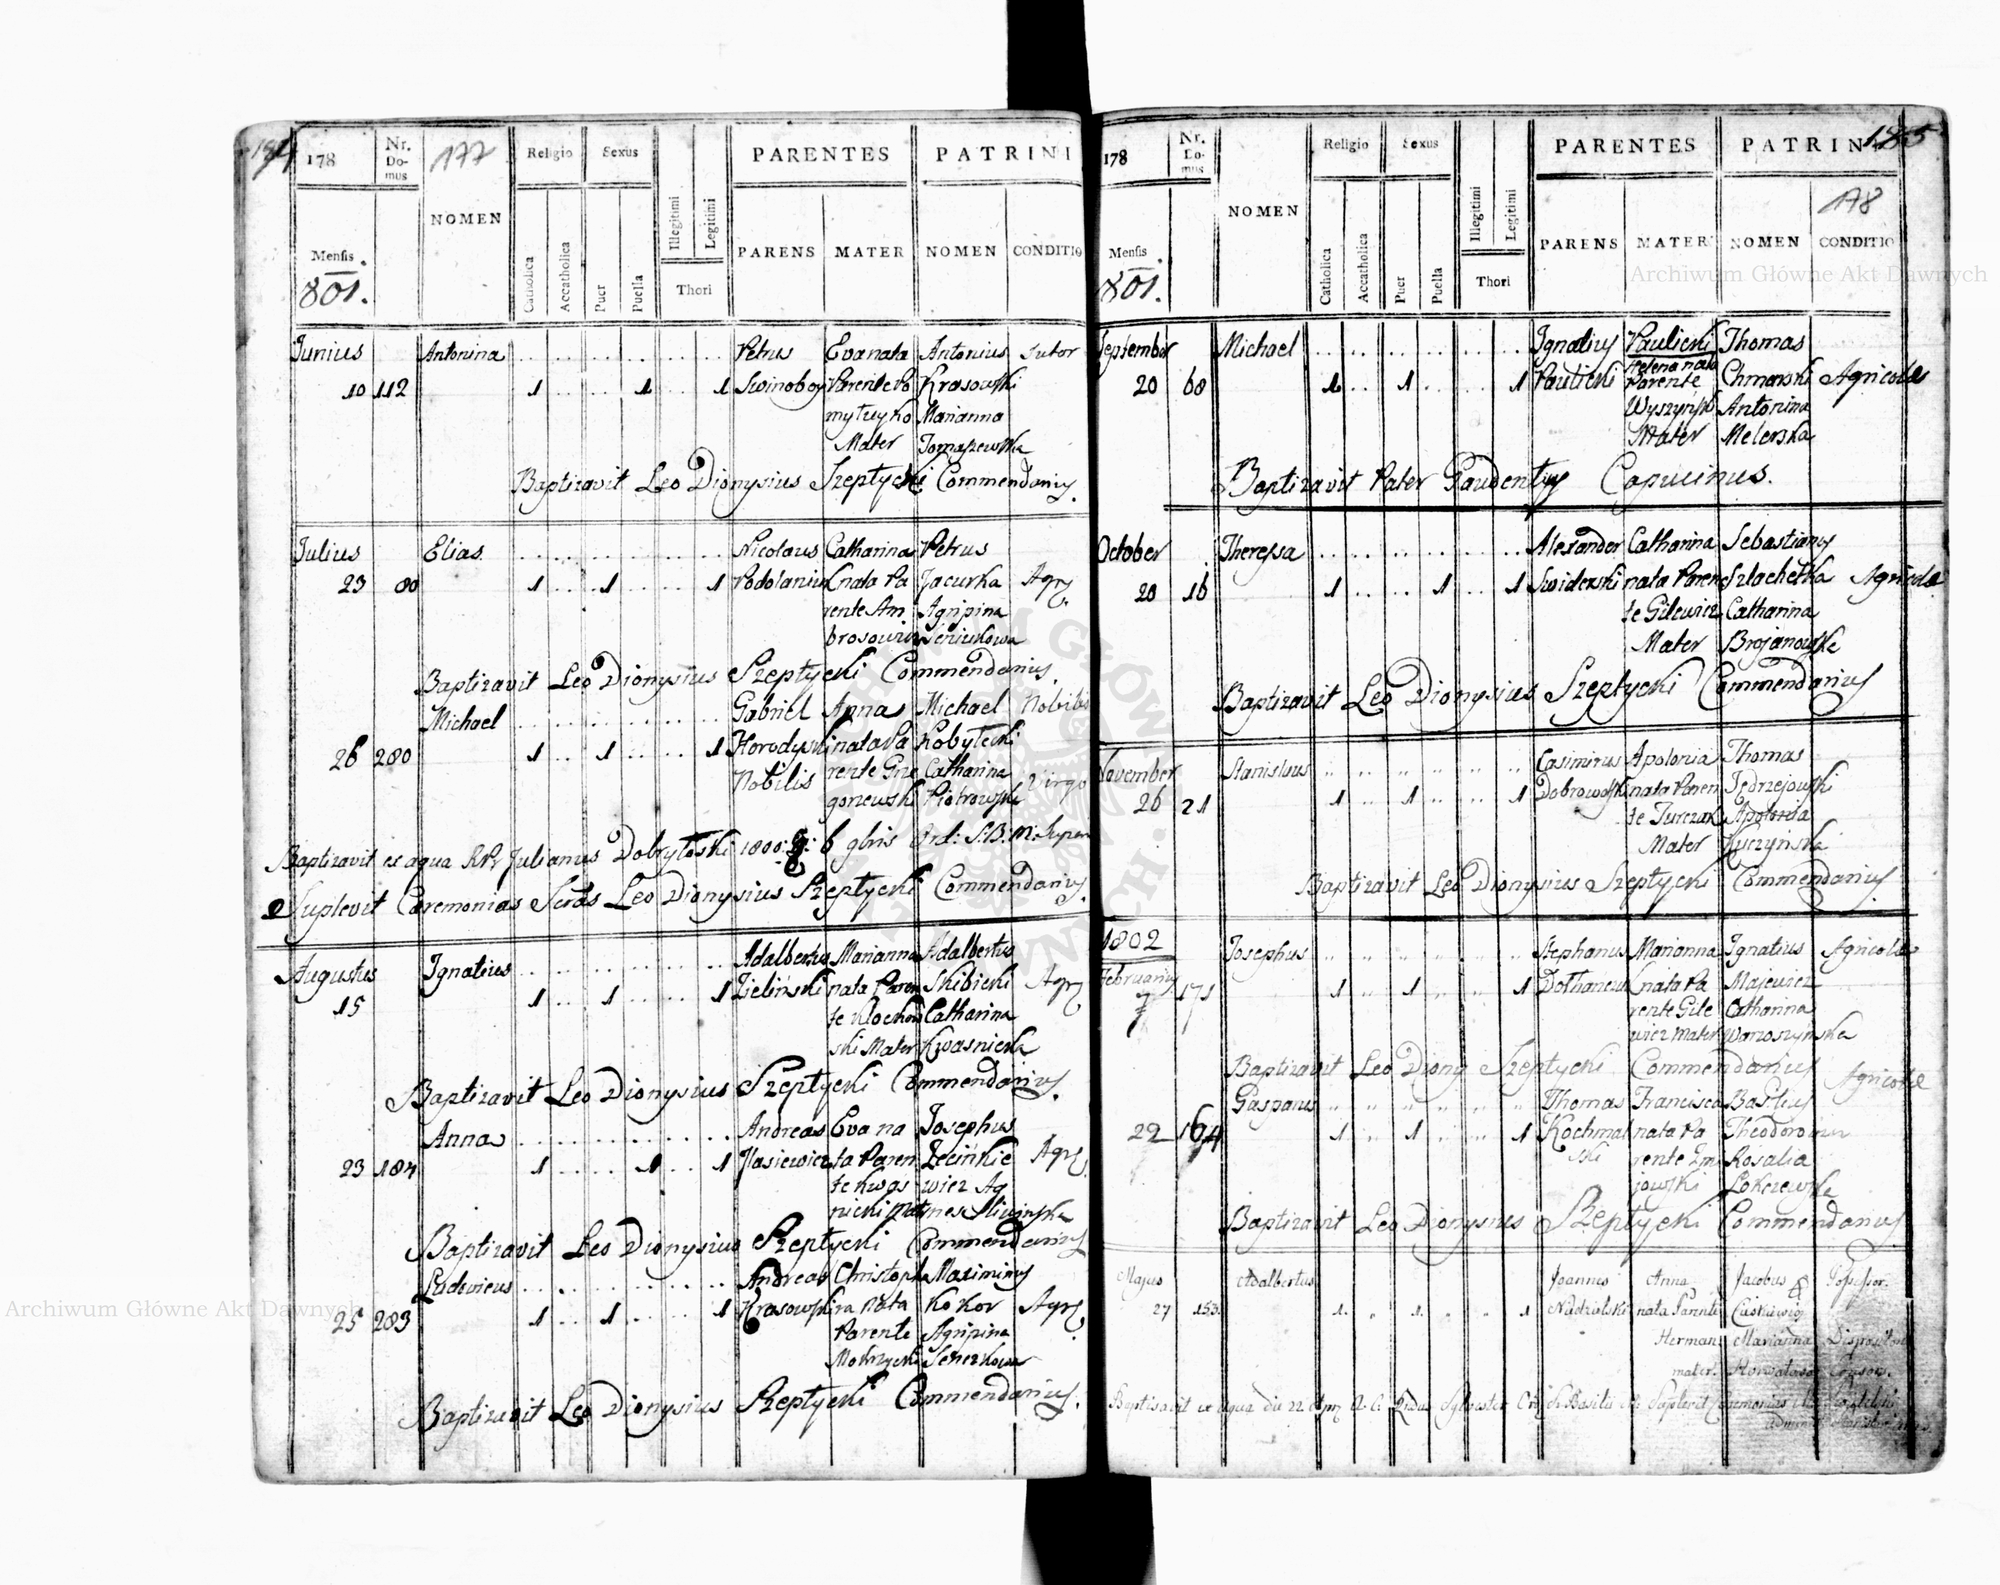 184
178
Nr. Domus
177
Religio
Sexus
PARENTES
PATRINI
NOMEN
Illegitimi
Legitimi
Mensis
Catholica
Accatholica
Puer
Puella
Thori
PARENS
MATER
NOMEN
CONDITIO
801.
Junius Antonina Petrus Eva nata Antonius Sutor
10 112 1 1 1 Swinoboy Parente Po Krasowski
mytuyko Marianna
Mater Tomaszewska
Baptizavit Leo Dionysius Szeptycki Commendarius.
Julius Elias Nicolaus Catharina Petrus
23 80 1 1 1 nata Pa Jacurka Agr
rente Am Agripina
Baptizavit Leo Dionysius Szeptycki Commendarius.
Michael Gabriel Anna Michael Nobilis
26 280 1 1 1 Horodyski nata Pa Kobylecki
Nobilis rente Grze Catharina Virgo
gorzewski Piotrowska
Baptizavit ex aqua Julianus 1800 Ord: S.B:M:
Suplevit Caeremonias Leo Dionysius Szeptycki Commendarius.
Augustus Ignatius Adalbertus Marianna Adalbertus
15 1 1 1 Zieliński nata Paren Skibicki Agr
te Klochow Catharina
ski Mater Kwasnicka
Baptizavit Leo Dionysius Szeptycki Commendarius.
Anna Andreas Eva na Josephus
23 184 1 1 1 Jlasiewicz ta Paren Agr
te Kwas wicz Ag
nicki Mat nes Sliwinska
Baptizavit Leo Dionysius Szeptycki Commendarius
Ludovicus Andreas Christopho Maximius
25 283 1 1 1 Krasowski ra nata Kokor Agr
Parente Agripina
Mokrzycki
Baptizavit Leo Dionysius Szeptycki Commendarius.
185
178
Nr. Domus
Religio
Sexus
PARENTES
PATRINI
178
NOMEN
Illegitimi
Legitimi
Mensis
Catholica
Accatholica
Puer
Puella
Thori
PARENS
MATER
NOMEN
CONDITIO
801.
September Michael Ignatius Paulicki Thomas
Helena nata
20 68 1 1 1 Paulicki Parente Chmerski Agricola
Wyszyńsk Antonina
Mater Melerska
Baptizavit Pater Gaudentius Capucinus.
October Theressa Alexander Catharina Sebastianus
20 16 1 1 1 Swiderski nata Paren Szlachetka Agricola
te Gilewicz Catharina
Mater Brojanowska
Baptizavit Leo Dionysius Szeptycki Commendarius
November Stanislaus Casimirus Apolonia Thomas
26 21 1 1 1 Dobrowolski nata Paren Jędrzejowski
te Turczak Apolonia
Mater Kuczyńska
Baptizavit Leo Dionysius Szeptycki Commendarius.
1802
Februarius Josephus Stephanus Marianna Ignatius Agricola
7 171 1 1 1 nata Pa Majewicz
rente Gile Catharina
wicz Mater
Baptizavit Leo Diony Szeptycki Commendarius
Gasparus Thomas Francisca Basilius Agricola
22 164 1 1 1 Kochmal nata Pa Theodorowicz
ski rente Zm Rosalia
jowski
Baptizavit Leo Dionysius Szeptycki Commendarius
Majus Adalbertus Joannes Anna Jacobus
27 153 1 1 1 Nadzolski nata Parente
Herman Marianna
mater.
Baptisavit ex aqua die 22 Sylvester
Archiwum Główne Akt Dawnych
Archiwum Główne Akt Dawnych